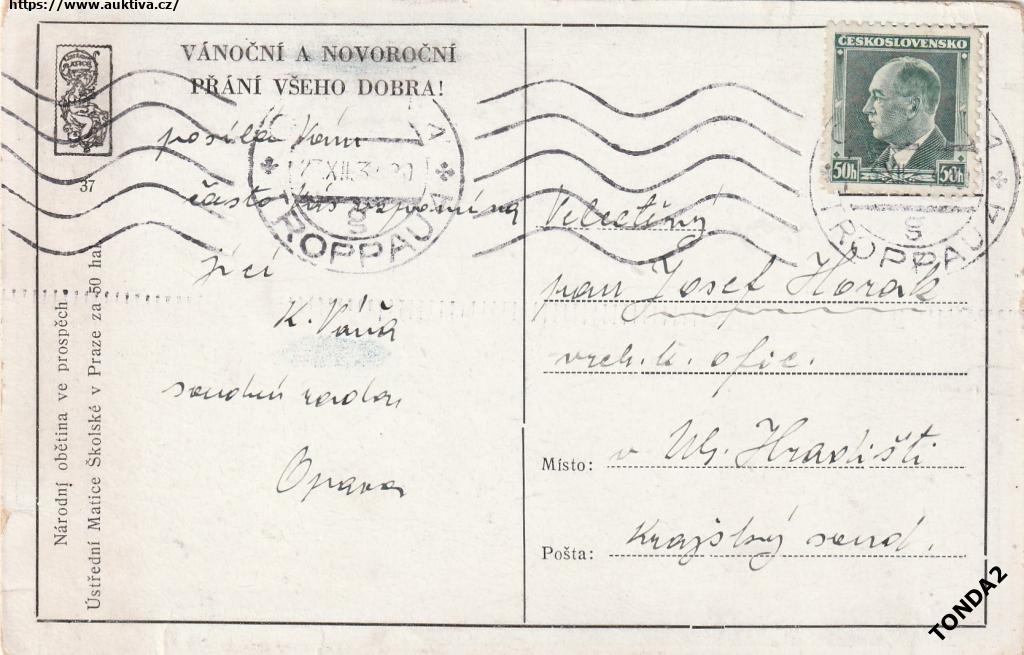 https://www.auktiva.cz/
VÁNOČNÍ A NOVOROČNÍ
PŘÁNÍ VŠEHO DOBRA!
posílá Vám
často Vás vzpomína
jící
K. Váňa
soudní rada
Opava
37
Národní obětina ve prospěch
Ústřední Matice Školské v Praze za 50 hal
TROPPAU
8
OPAVA
ČESKOSLOVENSKO
50h 50h
TROPPAU
8
OPAVA
Velectěný
pan Josef Horák
vrch. k. ofic.
Místo: v Uh. Hradišti
Pošta: Krajský soud.
TONDA2